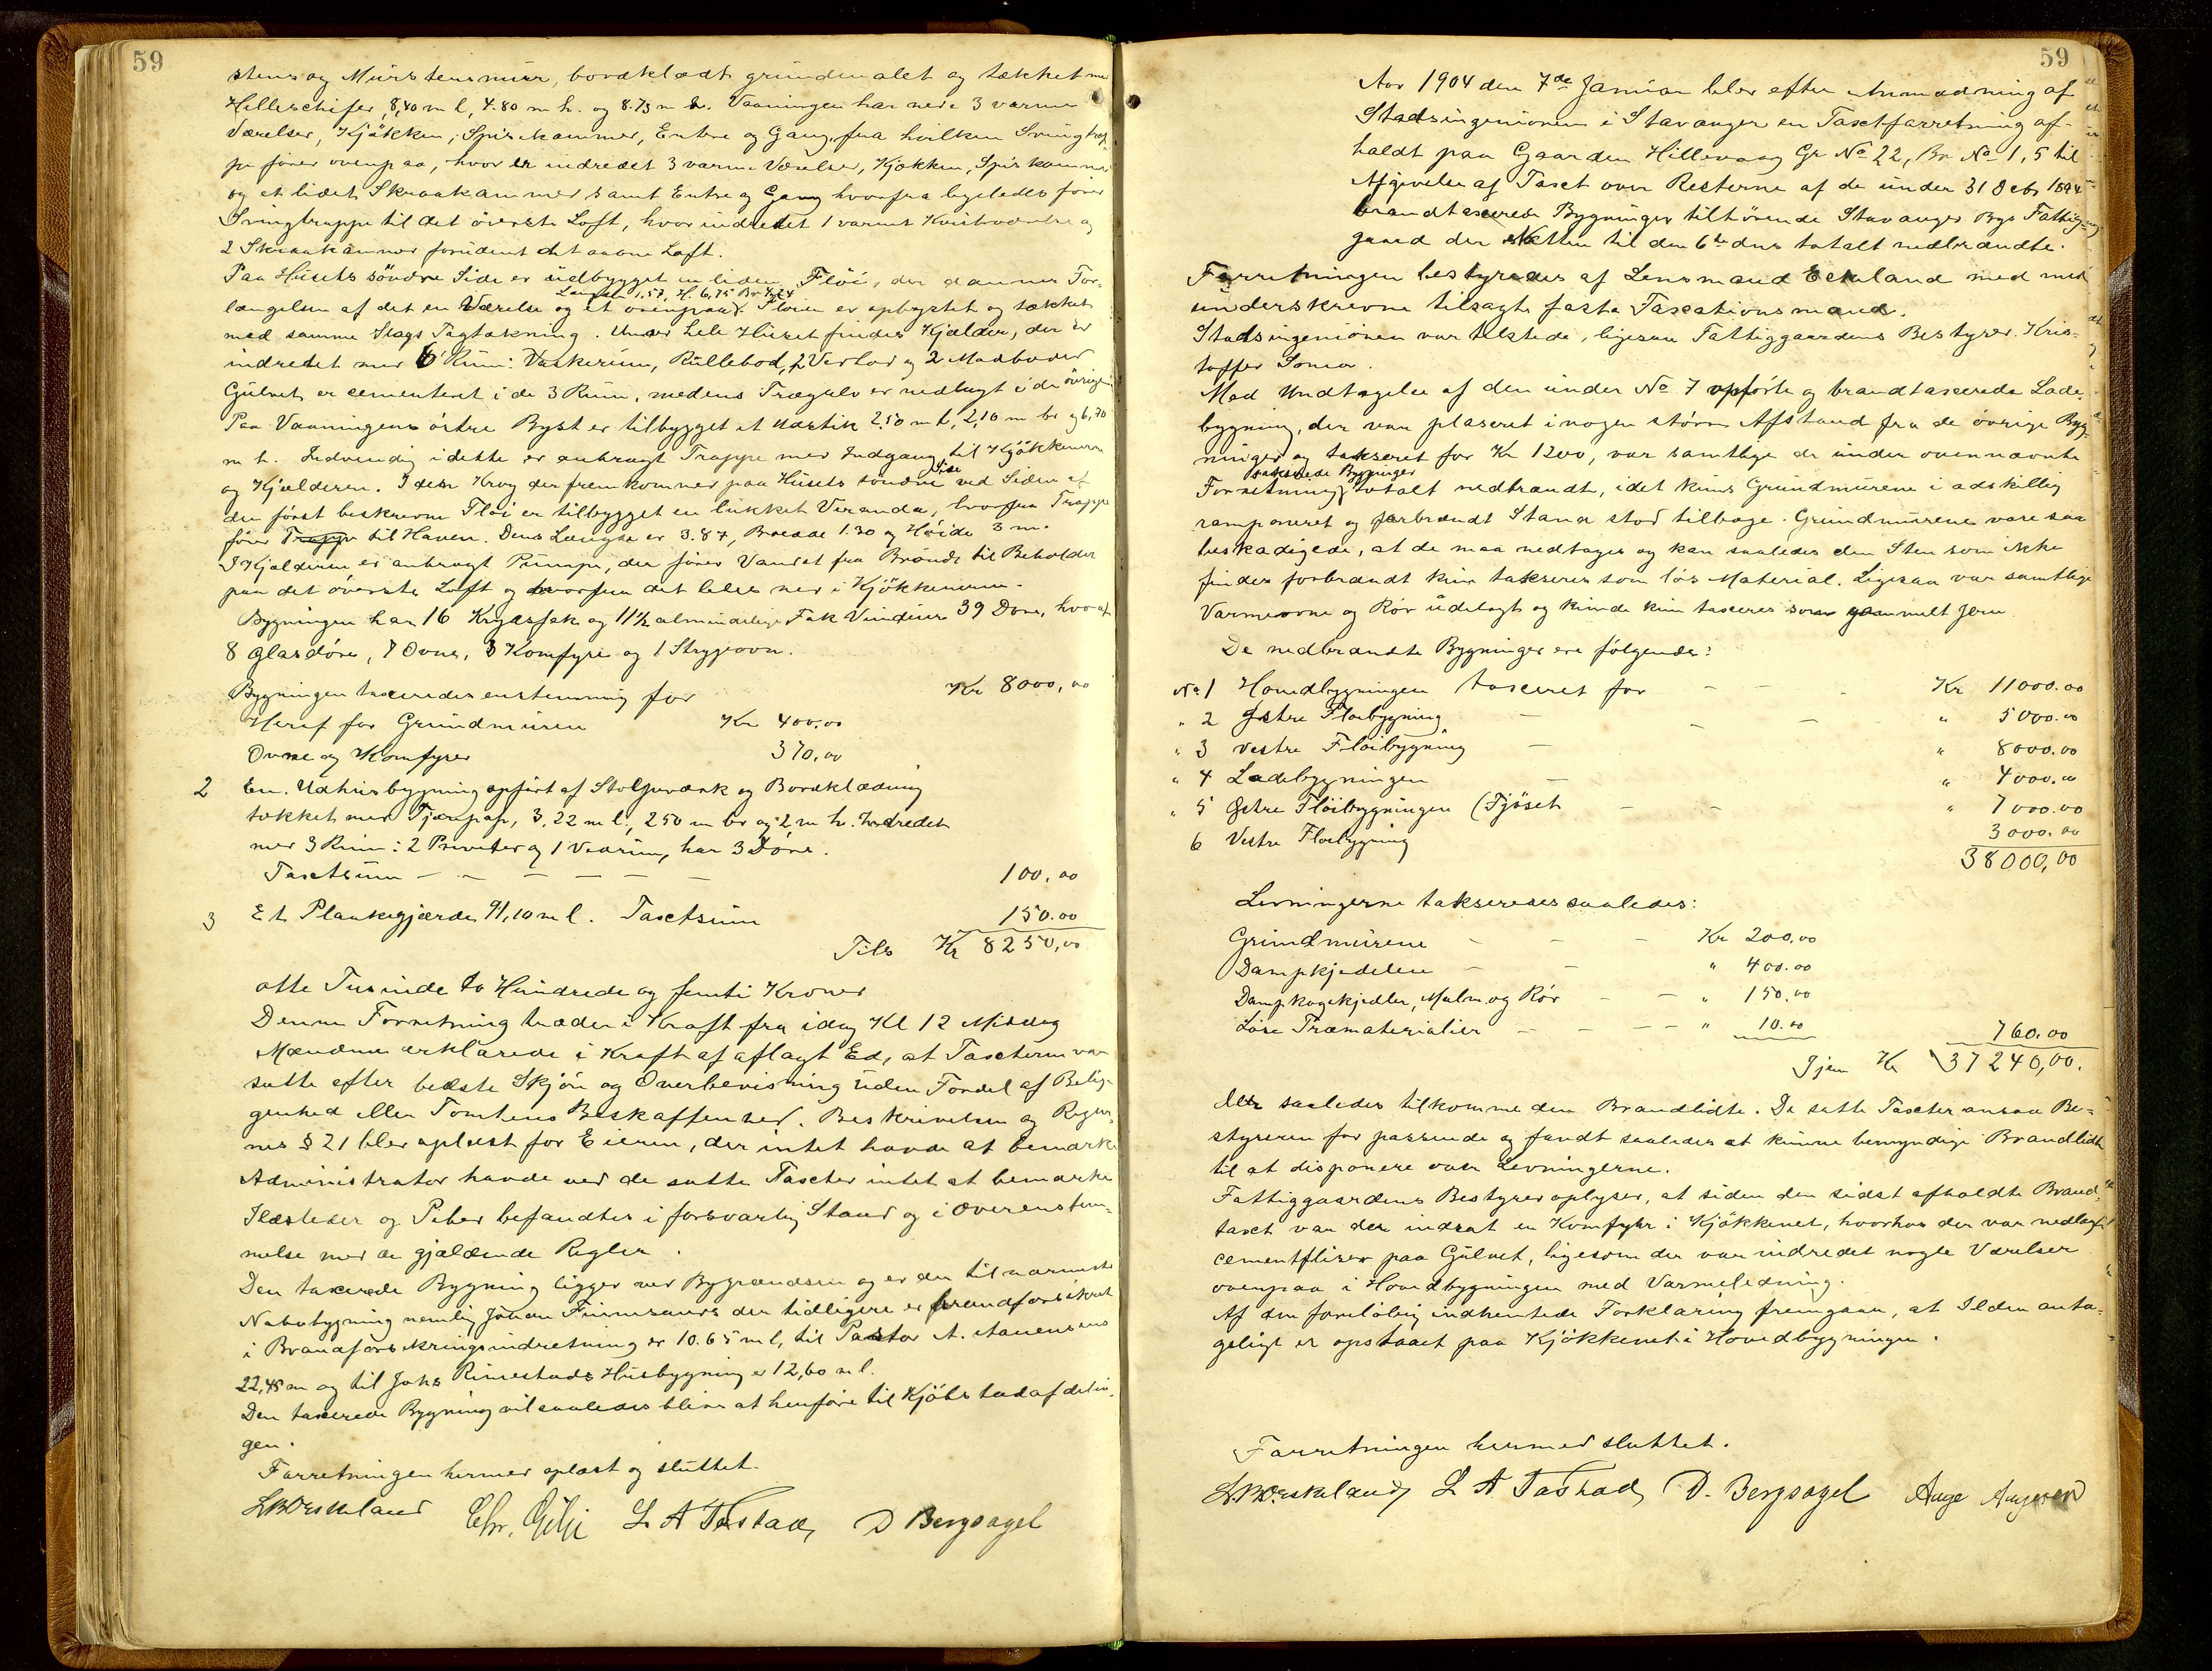 59
stens og Murstensmur, bordklædt grundmalet og tækket med
Helleschifer, 8,40 m l, 4.80 m h. og 8.73 m br. Vaaningen har nede 3 varme
Værelser, Kjökken, Spisekammer, Entre og Gang, fra hvilken Svingtrap-
pe förer ovenpaa, hvor er indredet 3 varme Værelser, Kjøkken, Spiskammer
og et lidet Skraakammer samt Entre og Gang hvorfra ligeledes förer
Svingtrappe til det överste Loft, hvor indredet 1 varmt Kvistværelse og
2 Skraakammer forudent det aabne Loft.
Paa Husets söndre Side er udbygget en liden Flöi, der danner For-
Længde 1,57, H. 6,75 Br 4,24
længelsen af det en Værelse og et ovenpaa. Flöien er opbygtet og tækket
med samme Slags Tagtækning. Under hele Huset findes Kjælder, der er
indredet med 6 Rum: Vaskerum, Rullebod, 2 Vedbod og 2 Madboder
Gulvet er cementeret i de 3 Rum, medens Trægulv er nedlagt i de övrige
Paa Vaaningens östre Byst er tilbygget et Udstik 2.50 m l, 2,10 m br og 6,70
m h. Indvendig i dette er anbragt Trappe med Indgang til Kjökkenerne
og Kjælderen. I den Krog der fremkommer paa Husets söndre Side ved Siden af
den först beskrevne Flöi er tilbygget en lukket Veranda, hvorfra Trappe
förer Trappe til Haven. Dens Længde er 3.87, Bredde 1.30 og Höide 3 m.
I Kjælderen er anbragt Pumpe, der förer Vandet fra Brönd til Beholder
paa det överste Loft og hvorfra det ledes ned i Kjökkenerne.
Bygningen har 16 Krydsfak og 11½ almindelige Fak Vinduer 39 Döre, hvoraf
8 Glasdöre, 7 Ovne, 3 Komfyre og 1 Strygeovn.
Bygningen taxeredes enstemmig for Kr 8000,00
Heraf for Grundmuren Kr 400,00
Ovne og Komfyrer 370,00
2 En Udhusbygning opfört af Stolpeværk og Bordklædning
tækket med Tjærepap, 3,22 m l., 250 m br og 2 m h. Indredet
med 3 Rum: 2 Priveter og 1 Vedrum, har 3 Döre.
Taxtsum - - - - - - 100.00
3 Et Plankegjærde 91,10 m l. Taxtsum 150.00
Tils Kr 8250,00
otte Tusinde to Hundrede og femti Kroner
Denne Forretning træder i Kraft fra idag Kl 12 Middag
Mændene erklærede i Kraft af aflagt Ed, at Taxterne var
satte efter bedste Skjön og Overbevisning uden Fordel af Belig-
genhed eller Tomtens Beskaffenhed. Beskrivelsen og Regler-
nes § 21 blev oplæst for Eieren, der intet havde at bemærke
Administrator havde ved de satte Taxter intet at bemærke
Ildsteder og Piber befandtes i forsvarlig Stand og i Overenstem-
melse med de gjældende Regler.
Den taxerede Bygning ligger ved Bygrændsen og er den til nærmeste
Nabobygning nemlig Johan Finnesands der tidligere er brandforsikret
i Brandforsikringsindretning er 10.65 m l, til Pastor A.
22,45 m og til Johs Rimestads Husbygning er 12,60 m l.
Den taxerede Bygning vil saaledes blive at henföre til Kjöbstadafdelin-
gen.
Forretningen hermed oplæst og sluttet.
Chr. Gilje L A Tastad, D Bergsagel
59
Aar 1904 den 7de Januar blev efter Anmodning af
Stadsingeniören i Stavanger en Taxtforretning af-
holdt paa Gaarden Hillevaag Gr No 22, Br No 1, 5 til
Afgivelse af Taxt over Resterne af de under 31 1894
brandtaxerede Bygninger tilhörende Stavanger Bys Fattig-
gaard der Natten til den 6te dns totalt nedbrændte.
Forretningen bestyredes af Lensmand Eskeland med med
underskrevne tilsagte faste Taxationsmænd.
Stadsingeniören var tilstede, ligesaa Fattiggaardens Bestyrer Kris-
toffer Soma.
Med Undtagelse af den under No 7 opförte og brandtaxerede Lade-
bygning, der var plaseret i nogen större Afstand fra de övrige Byg-
ninger og takseret for Kr 1200, var samtlige de under ovennævnte
takserede Bygninger
Forretning totalt nedbrændt, idet kuns Grundmurene i adskillig
ramponeret og forbrændt Stand stod tilbage. Grundmurene vare saa
beskadigede, at de maa nedtages og kan saaledes den Sten som ikke
findes forbrændt kun takseres som lös Material. Ligesaa var samtlige
Varmeovne og Rör ödelagt og kunde kun taxeres som gammelt Jern
De nedbrændte Bygninger ere fölgende:
No 1 Hovedbygningen taxeret for - - - Kr 11000.00
" 2 Østre Flöibygning - - - " 5000.00
" 3 Vestre Flöibygning - " 8000.00
" 4 Ladebygningen - " 4000.00
" 5 Østre Flöibygningen (Fjöset - - " 7000.00
6 Vestre Flöibygning 3000.00
38000,00
Levningerne takseredes saaledes:
Grundmurene - - - Kr 200,00
Dampkjedelen - - " 400.00
Dampkogekjedler, Malm og Rör - - " 150,00
Löse Træmaterialier - - - - " 10.00 760.00
Igjen Kr 37240,00.
der saaledes tilkomme den Brandlidte. De satte Taxter ansaa Be-
styreren for passende og fandt saaledes at kunne bemyndige Brandlidte
til at disponere over Levningerne.
Fattiggaardens Bestyrer oplyser, at siden den sidst afholdte Brand-
taxt var der indsat en Komfyhr i Kjökkenet, hvorhos der var nedlagt
cementfliser paa Gulvet, ligesom der var indredet nogle Værelser
ovenpaa i Hovedbygningen med Varmeledning.
Af den forelöbig indhentede Forklaring fremgaar, at Ilden anta-
geligt er opstaaet paa Kjökkenet i Hovedbygningen.
Forretningen hermed sluttet.
L A Tastad, D. Bergsagel Aage